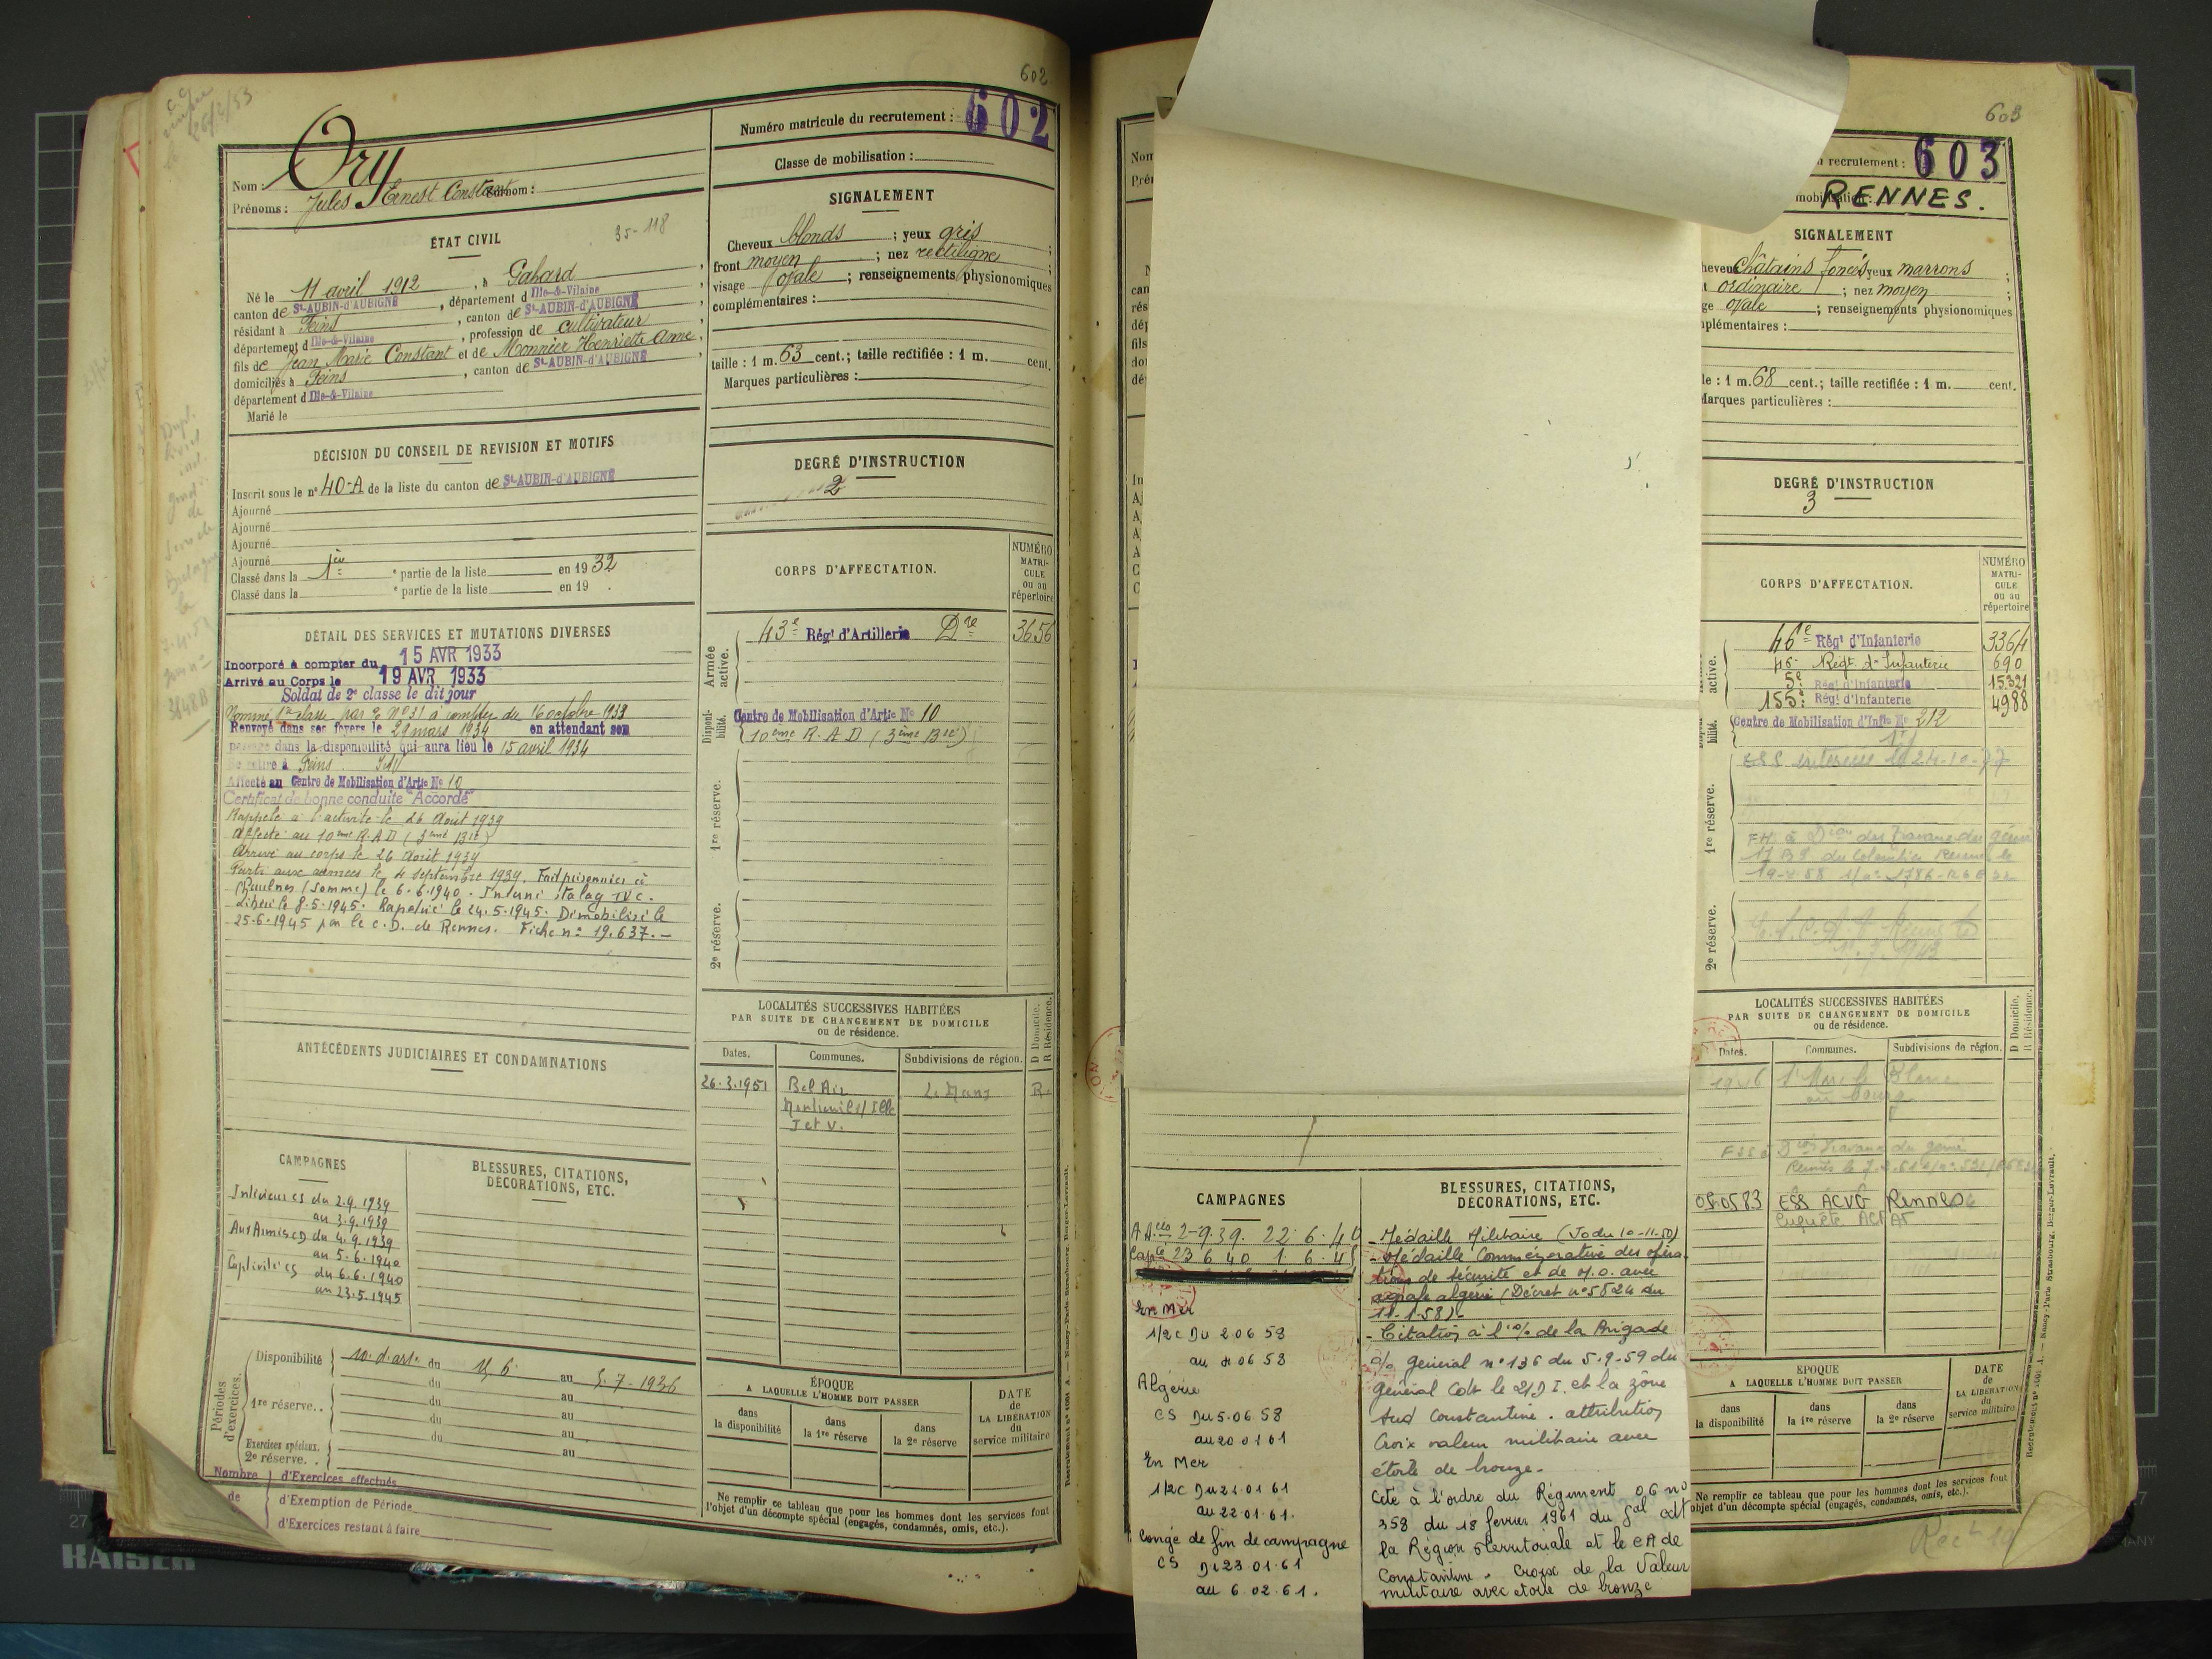 602
Numéro matricule du recrutement : 602
Classe de mobilisation :
Nom : Ory
Prénoms : Jules Ernest Constant Surnom :
ÉTAT CIVIL
35-118
Né le 11 avril 1912, à Gahard,
canton de St-AUBIN-d'AUBIGNÉ, département d Ille-&-Vilaine
résidant à Feins, canton de St-AUBIN-d'AUBIGNÉ
département d Ille-&-Vilaine, profession de cultivateur
fils de Jean Marie Constant et de Monnier Henriette Anne,
domiciliés à Feins, canton de St-AUBIN-d'AUBIGNÉ,
département d Ille-&-Vilaine
Marié le
DÉCISION DU CONSEIL DE REVISION ET MOTIFS
Inscrit sous le n° 40-A de la liste du canton de St-AUBIN-d'AUBIGNÉ
Ajourné
Ajourné
Ajourné
Ajourné
Classé dans la 1ère partie de la liste en 1932
Classé dans la e partie de la liste en 19 .
DÉTAIL DES SERVICES ET MUTATIONS DIVERSES
Incorporé à compter du 15 AVR 1933
Arrivé au Corps le 19 AVR 1933
Soldat de 2e classe le dit jour
Nommé 1re classe par O N°31 à compter du 16 octobre 1933
Renvoyé dans ses foyers le 29 mars 1934 en attendant son
passage dans la disponibilité qui aura lieu le 15 avril 1934
Se retire à Feins I&V
Affecté au Centre de Mobilisation d'Artie No 10
Certificat de bonne conduite "Accordé"
Rappelé à l'activité le 26 Août 1939
Affecté au 10ème R.A.D (3ème Bie)
Arrivé au corps le 26 Août 1939
Parti aux armées le 4 septembre 1939. Fait prisonnier à
Chaulnes (Somme) le 6.6.1940. Interné stalag IV C.
Libéré le 8.5.1945. Rapatrié le 24.5.1945. Démobilisé le
25.6.1945 par le C.D. de Rennes. Fiche n° 19.637.-
ANTÉCÉDENTS JUDICIAIRES ET CONDAMNATIONS
CAMPAGNES
Intérieur CS du 2.9.1939
au 3.9.1939
Aux Armées CD du 4.9.1939
au 5.6.1940
Captivité CS du 6.6.1940
au 23.5.1945
BLESSURES, CITATIONS,
DÉCORATIONS, ETC.
Périodes d'exercices.
Disponibilité 10. d'art. du 15 6 au 5.7-1936
du au
1re réserve. . du au
du au
du au
Exercices spéciaux.
2e réserve. . au
Nombre de
d'Exercices effectués
d'Exemption de Période
d'Exercices restant à faire
SIGNALEMENT
Cheveux blonds ; yeux gris ;
front moyen ; nez rectiligne ;
visage ovale ; renseignements physionomiques
complémentaires :
taille : 1 m. 63 cent.; taille rectifiée : 1 m. cent.
Marques particulières :
DEGRÉ D'INSTRUCTION
2
CORPS D'AFFECTATION.
NUMÉRO
MATRI-
CULE
ou au
répertoire
Armée active.
43e Régt d'Artillerie Dre 3656
Disponi-bilité.
Centre de Mobilisation d'Artie No 10
10ème R.A.D (3ème Bie)
1re réserve.
2e réserve.
LOCALITÉS SUCCESSIVES HABITÉES
PAR SUITE DE CHANGEMENT DE DOMICILE
ou de résidence.
D Domicile.
R Résidence.
Dates. Communes. Subdivisions de région.
26.3.1951 Bel Air Le Mans R.
Montreuil s/ Ille
I et V.
ÉPOQUE
A LAQUELLE L'HOMME DOIT PASSER
dans
la disponibilité
dans
la 1re réserve
dans
la 2e réserve
DATE
de
LA LIBÉRATION
du
service militaire
Ne remplir ce tableau que pour les hommes dont les services font
l'objet d'un décompte spécial (engagés, condamnés, omis, etc.).
603
recrutement : 603
RENNES.
SIGNALEMENT
Châtains foncés yeux marrons ;
ordinaire ; nez moyen ;
ovale ; renseignements physionomiques
plémentaires :
1 m. 68 cent.; taille rectifiée : 1 m. cent.
Marques particulières :
DEGRÉ D'INSTRUCTION
3
CORPS D'AFFECTATION.
NUMÉRO
MATRI-
CULE
ou au
répertoire
active.
46e Régt d'Infanterie 3364
46e Régt d'Infanterie 690
5e Régt d'Infanterie 15321
155e Régt d'Infanterie 4988
bilité.
Centre de Mobilisation d'Infie No 212
1re réserve.
2e réserve.
LOCALITÉS SUCCESSIVES HABITÉES
PAR SUITE DE CHANGEMENT DE DOMICILE
ou de résidence.
D Domicile.
R Résidence.
Dates. Communes. Subdivisions de région.
St Marc le Blanc
au bourg
05.05.83 ESS ACVG Rennes
Enquête
CAMPAGNES
2-9.39. 22.6.40
Capté 23 6 40 1.6.45
En Mer
1/2C Du 2 06 58
au 4 06 58
Algérie
CS Du 5.06 58
au 20 01 61
En Mer
1/2C Du 21 01 61
au 22.01.61.
Congé de fin de campagne
CS Du 23.01.61
au 6.02.61.
BLESSURES, CITATIONS,
DÉCORATIONS, ETC.
- Médaille Militaire (Jo du 10-11.50)
- Médaille Commémorative des opéra-
tions de sécurité et de M.O. avec
agrafe algérie (Décret n°5824 du
11.1.58).
- Citation à l'o/. de la Brigade
o/. général n°136 du 5.9-59 du
général Cdt le 21 D I. et la zône
Sud Constantine. attribution
Croix valeur militaire avec
étoile de bronze.
Cité à l'ordre du Régiment OG no
358 du 18 février 1961 du Gal cdt
la Région territoriale et le CA de
Constantine. Croix de la Valeur
militaire avec etoile de bronze
EPOQUE
A LAQUELLE L'HOMME DOIT PASSER
dans
la disponibilité
dans
la 1re réserve
dans
la 2e réserve
DATE
de
LA LIBÉRATION
du
service militaire
Ne remplir ce tableau que pour les hommes dont les services font
objet d'un décompte spécial (engagés, condamnés, omis, etc.).
KAISER